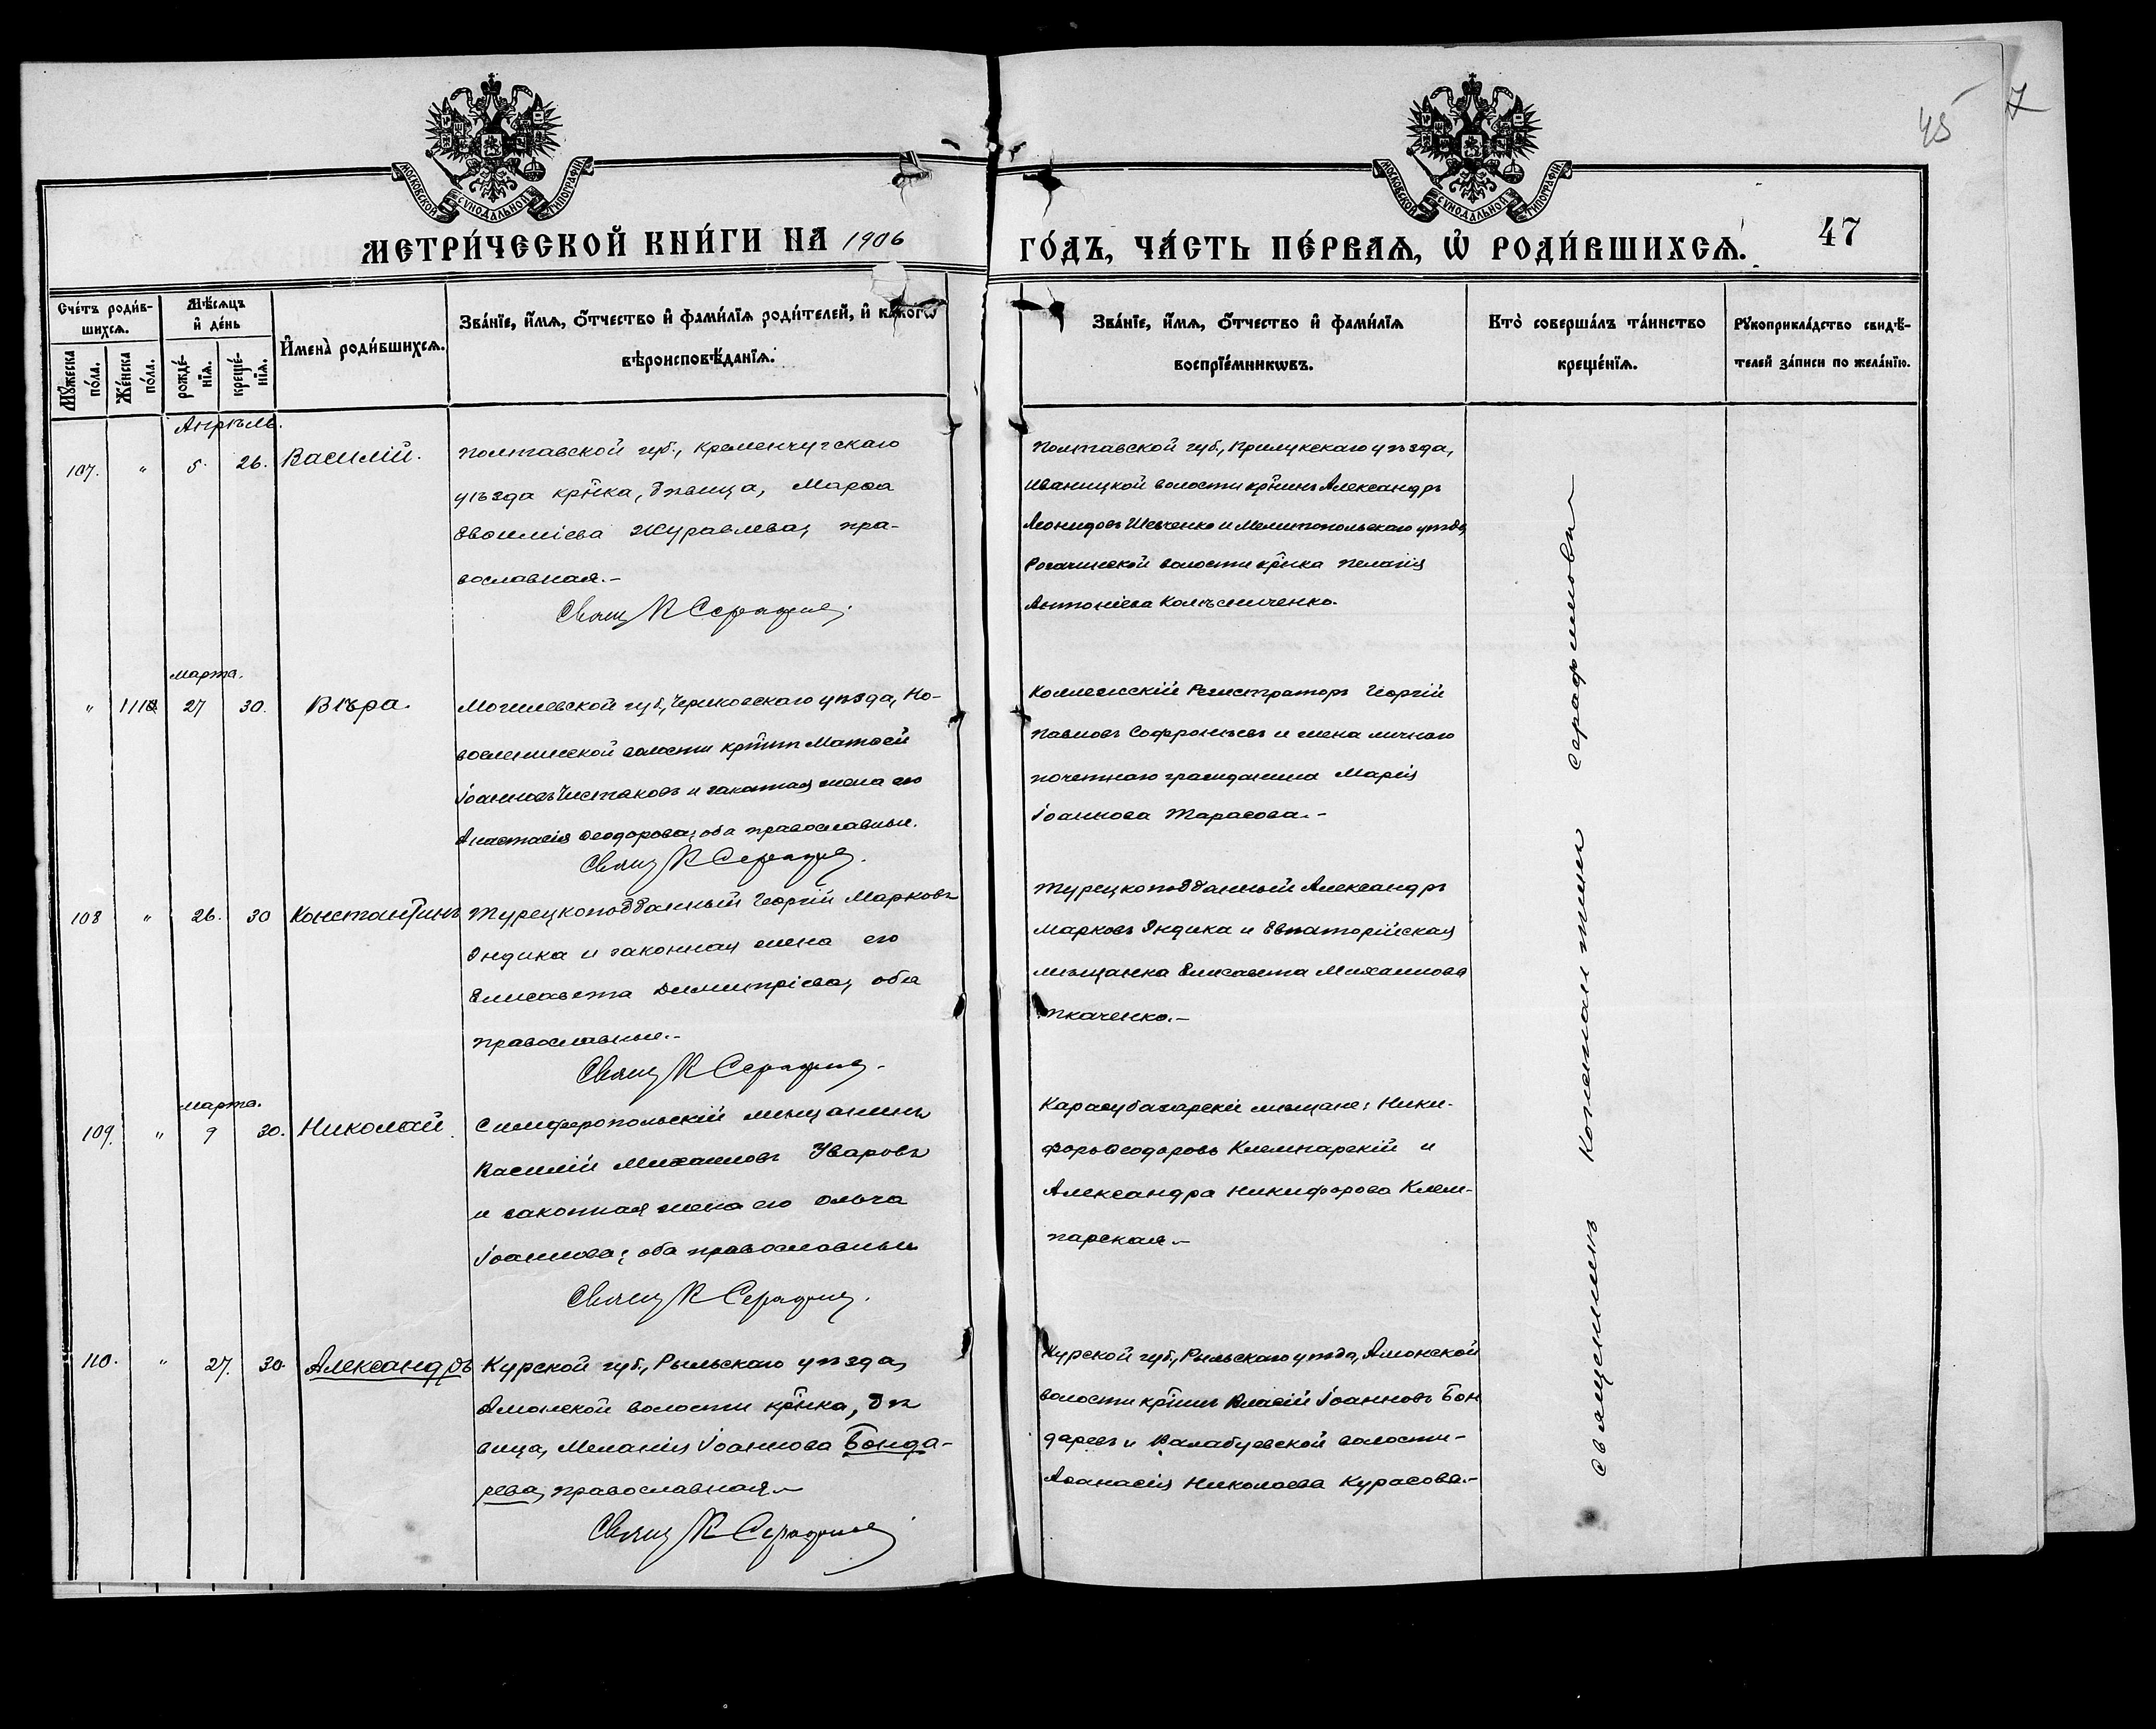 45
7
МОСКОВСКОЙ СѴНОДАЛЬНОЙ ТИПОГРАФІИ
МОСКОВСКОЙ СѴНОДАЛЬНОЙ ТИПОГРАФІИ
МЕТРИ́ЧЕСКОЙ КНИ́ГИ НА 1906
ГО́ДЪ, ЧА́СТЬ ПЕ́РВАѦ, Ѡ҆ РОДИ́ВШИХСѦ.
47
Сче́тъ роди́в-
шихсѧ.
Мꙋ́жеска по́ла.
Же́нска по́ла.
Мѣ́сѧцъ
и҆ де́нь
рожде́-
нїѧ.
креще́-
нїѧ.
И҆мена̀ роди́вшихсѧ.
Зва́нїе, и҆́мѧ, ѻ҆́тчество и҆ фами́лїѧ роди́телей, и҆ како́гѡ
вѣроисповѣ́данїѧ.
Зва́нїе, и҆́мѧ, ѻ҆́тчество и҆ фами́лїѧ
воспрїе́мникѡвъ.
Кто̀ соверша́лъ та́инство
креще́нїѧ.
Рꙋкоприкла́дство свидѣ́-
телей за́писи по жела́нїю.
Апрѣль.
107. " 5. 26. Василій.
Полтавской губ., Кременчугскаго
уѣзда кр̃нка, дѣвица, Марѳа
Евѳиміева Журавлева, пра-
вославная.-
Свящ К Серафим
Полтавской губ., Прилукскаго уѣзда,
Иваницкой волости кр̃нинъ Александръ
Леонидовъ Шевченко и Мелитопольскаго уѣзда,
Рогачинской волости кр̃нка Пелагія
Антоніева Колѣсниченко.
Марта.
" 27 30. Вѣра.
Могилевской губ., Чериковскаго уѣзда, Но-
волости кр̃нинъ Матѳей
Іоанновъ Чистяковъ и законная жена его
Анастасія Ѳеодорова; оба православные.
Свящ К Серафим.
Коллежскій Регистраторъ Георгій
Павловъ Софроньевъ и жена личнаго
почетнаго гражданина Марія
Іоаннова Тарасова.-
108 " 26. 30 Константинъ
Турецкоподданный Георгій Марковъ
Яндика и законная жена его
Елисавета Димитріева, оба
православные.-
Свящ К Серафим.
Турецкоподданный Александръ
Марковъ Яндика и Евпаторійская
мѣщанка Елисавета Михаилова
Ткаченко.-
Марта.
109. " 9 30. Николай.
Симферопольскій мѣщанинъ
Василій Михаиловъ Уваровъ
и законная жена его Ольга
Іоаннова; оба православные
Свящ К Серафим.
Карасубазарскіе мѣщане: Ники-
форъ Ѳеодоровъ Клемпарскій и
Александра Никифорова Клем-
парская.-
110. " 27. 30. Александръ
Курской губ., Рыльскаго уѣзда,
Амонской волости кр̃нка, дѣ
вица, Меланія Іоаннова Бонда-
рева, православная.-
Свящ К Серафим
Курской губ., Рыльскаго уѣзда, Амонской
волости кр̃нинъ Власій Іоанновъ Бон
даревъ и волости-
Аѳанасія Николаева Курасова.-
Священникъ Константинъ Серафимовъ